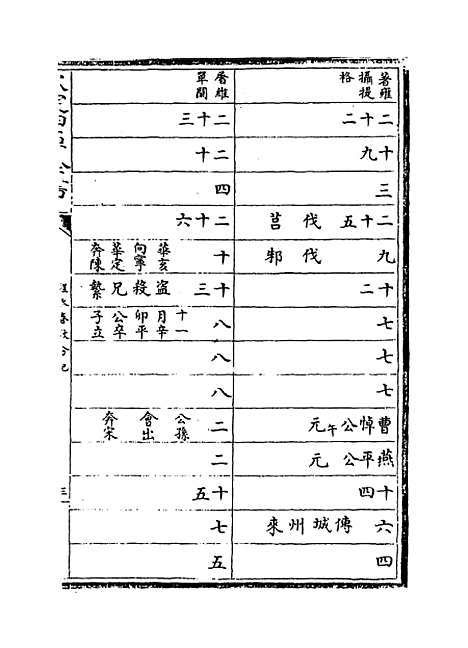 著雍
攝提
格
二十二
十九
三
二十五 伐莒
九 伐邾
十二
七
七
七
曹悼公午元
燕平公元
十四
六 傳城州來
四
屠維
單閼
二十三
二十
四
二十六
十 華亥向寧華定奔陳
十三 盜殺兄縶
八 十一月辛卯平公卒子立
八
八
二 公孫會出奔宋
二
十五
七
五